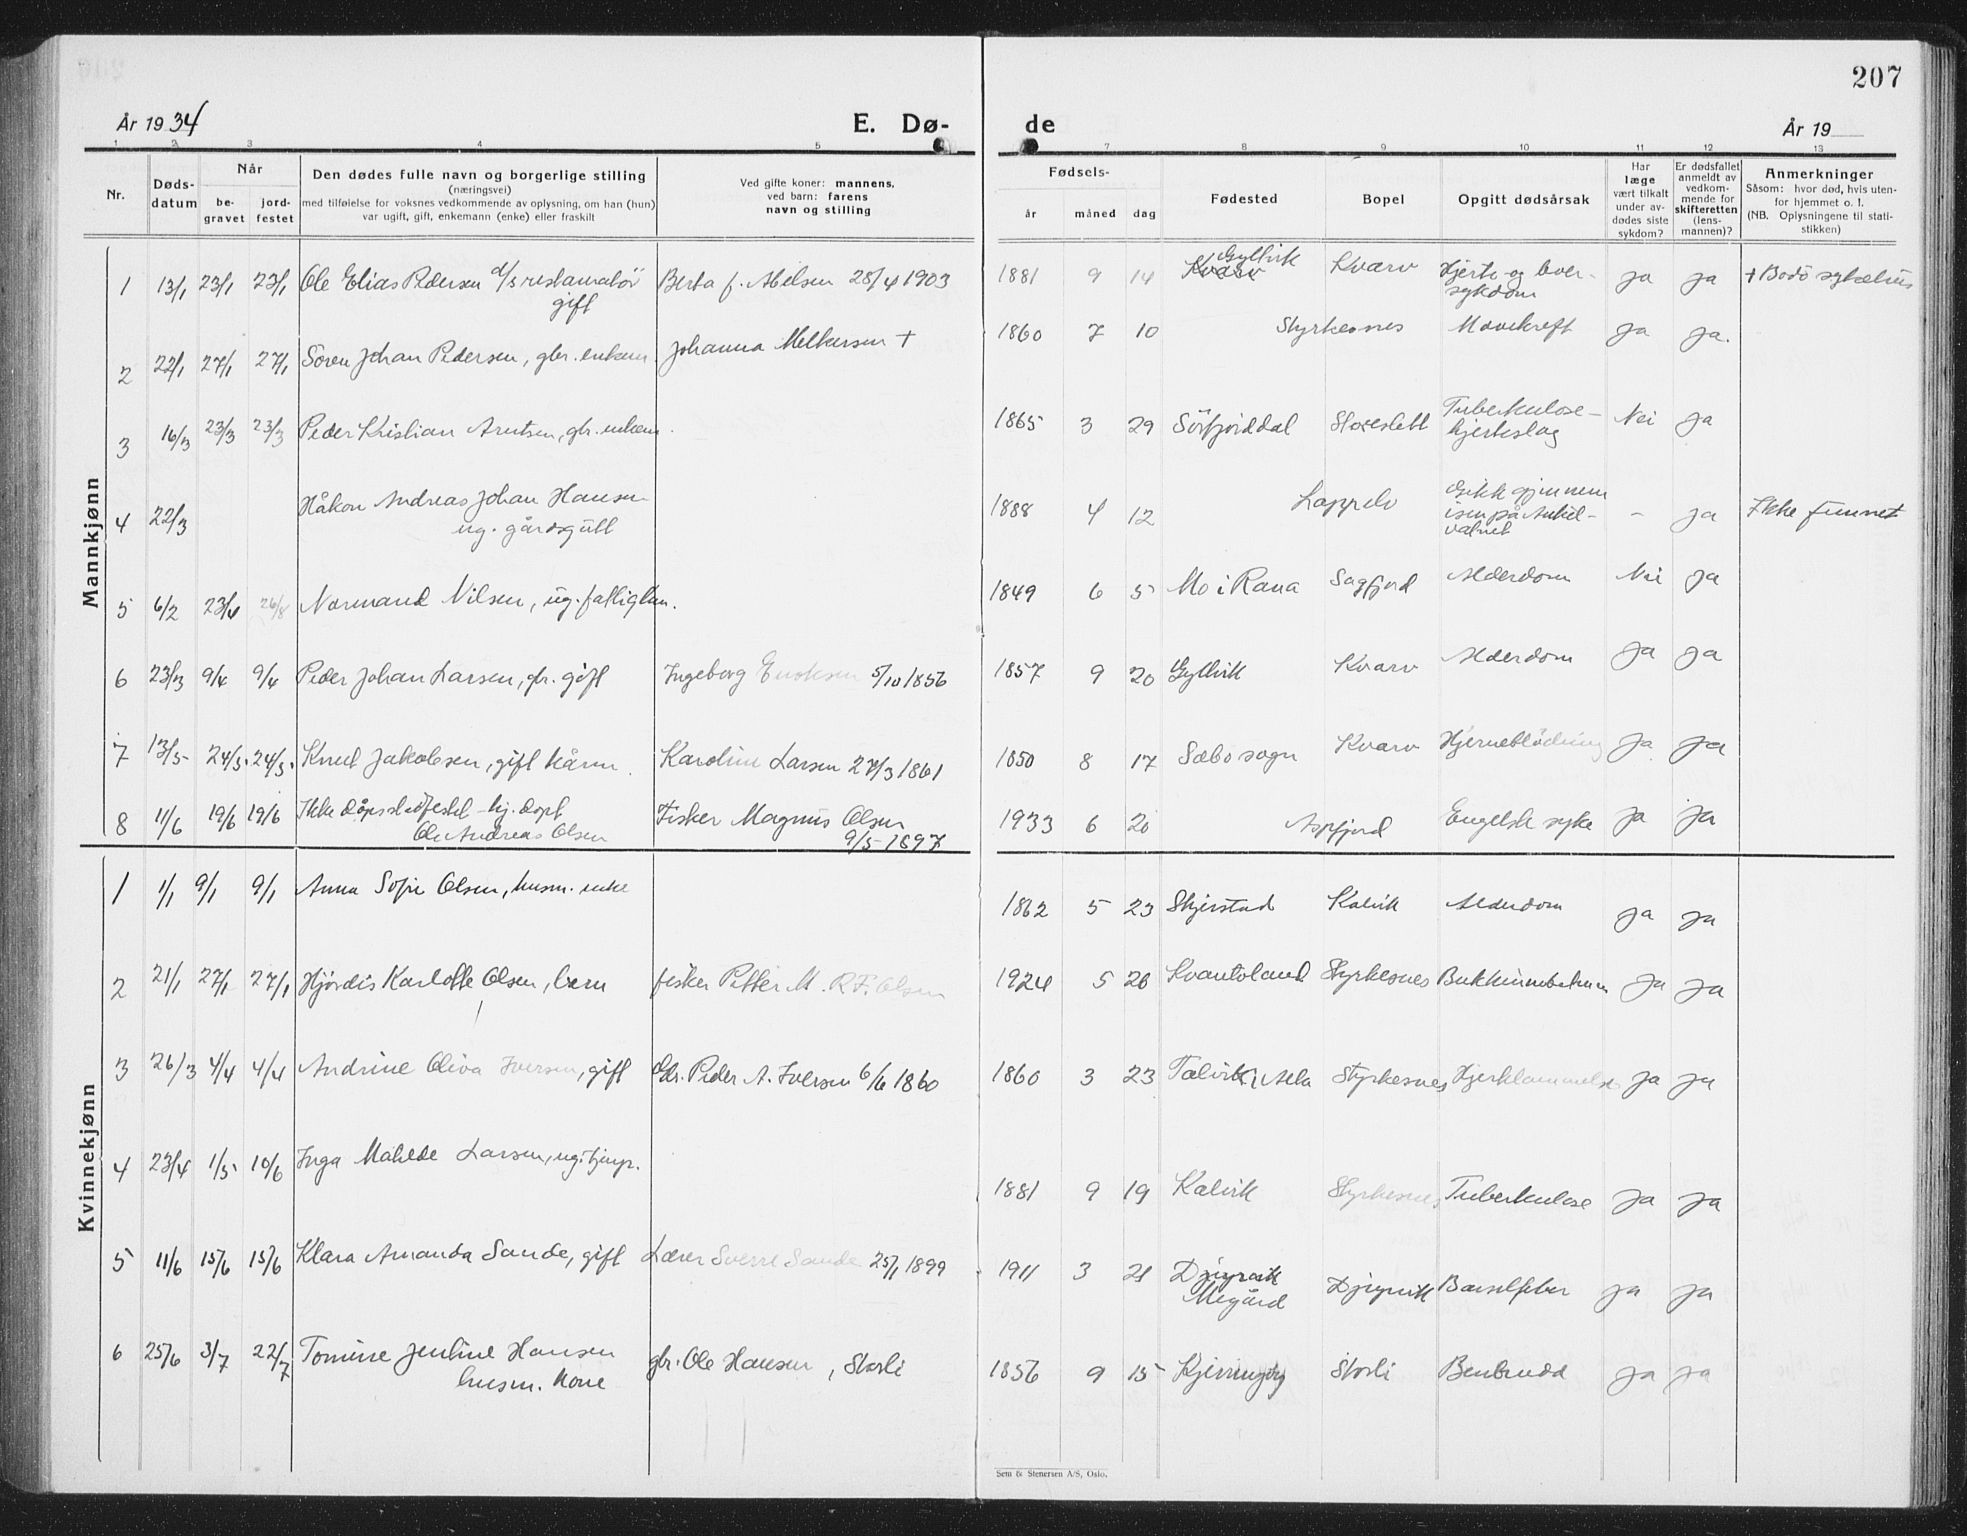 207
År 1934
E. Dø-
de
År 19
1 2 3 4 5 7 8 9 10 11 12 13
Nr.
Døds-
datum
Når
be-
gravet
jord-
festet
Den dødes fulle navn og borgerlige stilling
(næringsvei)
med tilføielse for voksnes vedkommende av oplysning, om han (hun)
var ugift, gift, enkemann (enke) eller fraskilt
Ved gifte koner: mannens,
ved barn: farens
navn og stilling
Fødsels-
år måned dag
Fødested
Bopel
Opgitt dødsårsak
Har
læge
vært tilkalt
under av-
dødes siste
sykdom?
Er dødsfallet
anmeldt av
vedkom-
mende for
skifteretten
(lens-
mannen)?
Anmerkninger
Såsom: hvor død, hvis uten-
for hjemmet o. l.
(NB. Oplysningene til stati-
stikken)
Mannkjønn
1 13/1 23/1 23/1 Ole Elias Pedersen d/s restauratör
gift
Berta f. Abelsen 28/4 1903
1881 9 14 Kvarv Gyllvik Kvarv Hjerte og lever-
sykdom ja ja † Bodö sykehus
2 22/1 27/1 27/1 Sören Johan Pedersen, gbr. enkem Johanna Melkersen †
1860 7 10 Styrkesnes Mavekreft ja ja.
3 16/3 23/3 23/3 Peder Kristian Arntsen, gbr. enkem.
1865 3 29 Sörfjorddal Storeslett Tuberkulose-
hjerteslag Nei ja
4 22/3 Håkon Andreas Johan Hansen
ug. gårdsgutt
1888 4 12 Lappelv Gikk gjennem
isen på
vatnet - ja Ikke funnet
5 6/2 23/4 26/8 Normand Nilsen, ug. fattiglem.
1849 6 5 Mo i Rana Sagfjord Alderdom Nei ja
6 23/3 9/4 9/4 Peder Johan Larsen, gbr. gift Ingeborg Enoksen 5/10 1856
1857 9 20 Gyllvik Kvarv Alderdom ja ja
7 13/5 24/5 24/5 Knut Jakobsen, gift kårm. Karoline Larsen 27/3 1861
1850 8 17 Sæbö sogn Kvarv Hjerneblödning ja ja
8 11/6 19/6 19/6 Ikke dåpsstadfestet - hj. döpt
Ole Andreas Olsen
Fisker Magnus Olsen
9/5-1897
1933 6 20 Aspfjord Engelsk syke ja ja
Kvinnekjønn
1 1/1 9/1 9/1 Anna Sofie Olsen, husm. enke
1862 5 23 Skjerstad Kalvik Alderdom ja ja
2 21/1 27/1 27/1 Hjördis Karlotte Olsen, barn fisker Petter M. R. F. Olsen
1924 5 26 Kvantoland Styrkesnes ja ja
3 26/3 4/4 4/4 Andrine Oliva Iversen, gift Gbr. Peder A. Iversen 6/6 1860
1860 3 23 Talvik i Alta Styrkesnes Hjertelammelse ja ja
4 23/4 1/5 10/6 Inga Matilde Larsen, ug. tjenp.
1881 9 19 Kalvik Styrkesnes Tuberkulose ja ja
5 11/6 15/6 15/6 Klara Amanda Sande, gift Lærer Sverre Sande 25/1 1899
1911 3 21 Djupvik
Megård Djupvik Barselfeber ja ja
6 25/6 3/7 22/7 Tomine Jentine Hansen
husm. kone
gbr. Ole Hansen, Storli
1856 9 15 Kjerringöy Storli Benbrudd ja ja
Sem & Stenersen A/S, Oslo.